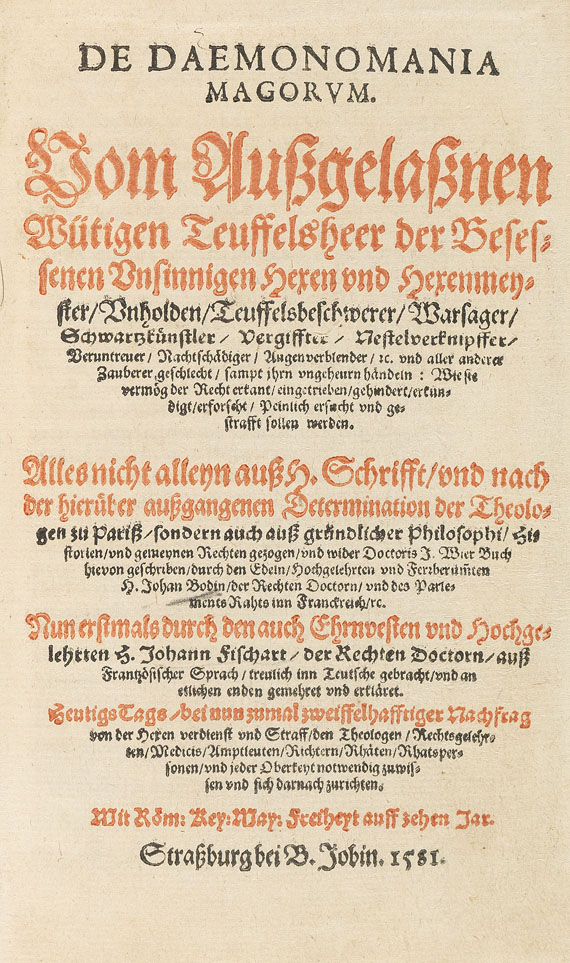 DE DAEMONOMANIA
MAGORVM.
Vom Außgelaßnen
Wütigen Teuffelsheer der Beses-
senen Vnsinnigen Hexen vnd Hexenmey-
ster/Vnholden/Teuffelsbeschwerer/Warsager/
Schwartzkünstler/ Vergiffter/ Nestelverknipffer/
Veruntreuer/ Nachtschädiger/ Augenverblender/ ꝛc. vnd aller anderer
Zauberer geschlecht/ sampt jhrn vngeheurn händeln: Wie sie
vermög der Recht erkant/ eingetrieben/ gehindert/ erkun-
digt/ erforscht/ Peinlich ersucht vnd ge-
strafft sollen werden.
Alles nicht alleyn auß H. Schrifft/ vnd nach
der hierüber außgangenen Determination der Theolo-
gen zu Pariß/ sondern auch auß gründlicher Philosophi/ His
storien/ vnd gemeynen Rechten gezogen/ vnd wider Doctoris J. Wier Buch
hievon geschriben/ durch den Edeln/ Hochgelehrten vnd Ferrberümten
H. Johan Bodin/ der Rechten Doctorn/ vnd des Parle-
ments Rahts inn Franckreich/ ꝛc.
Nun erstmals durch den auch Ehrnvesten vnd Hochge-
lehrten H. Johann Fischart/ der Rechten Doctorn/ auß
Frantzösischer Sprach/ treulich inn Teutsche gebracht/ vnd an
etlichen enden gemehret vnd erkläret.
Heutigs Tags/ bei nun zumal zweiffelhafftiger Nachfrag
von der Hexen verdienst vnd Straff/ den Theologen/ Rechtsgelehr-
ten/ Medicis/ Amptleuten/ Richtern/ Rhäten/ Rhatsper-
sonen/ vnd jeder Oberkeyt notwendig zuwis-
sen vnd sich darnach zurichten.
Mit Röm: Key: May: Freiheyt auff zehen Jar.
Straßburg bei B. Jobin. 1581.